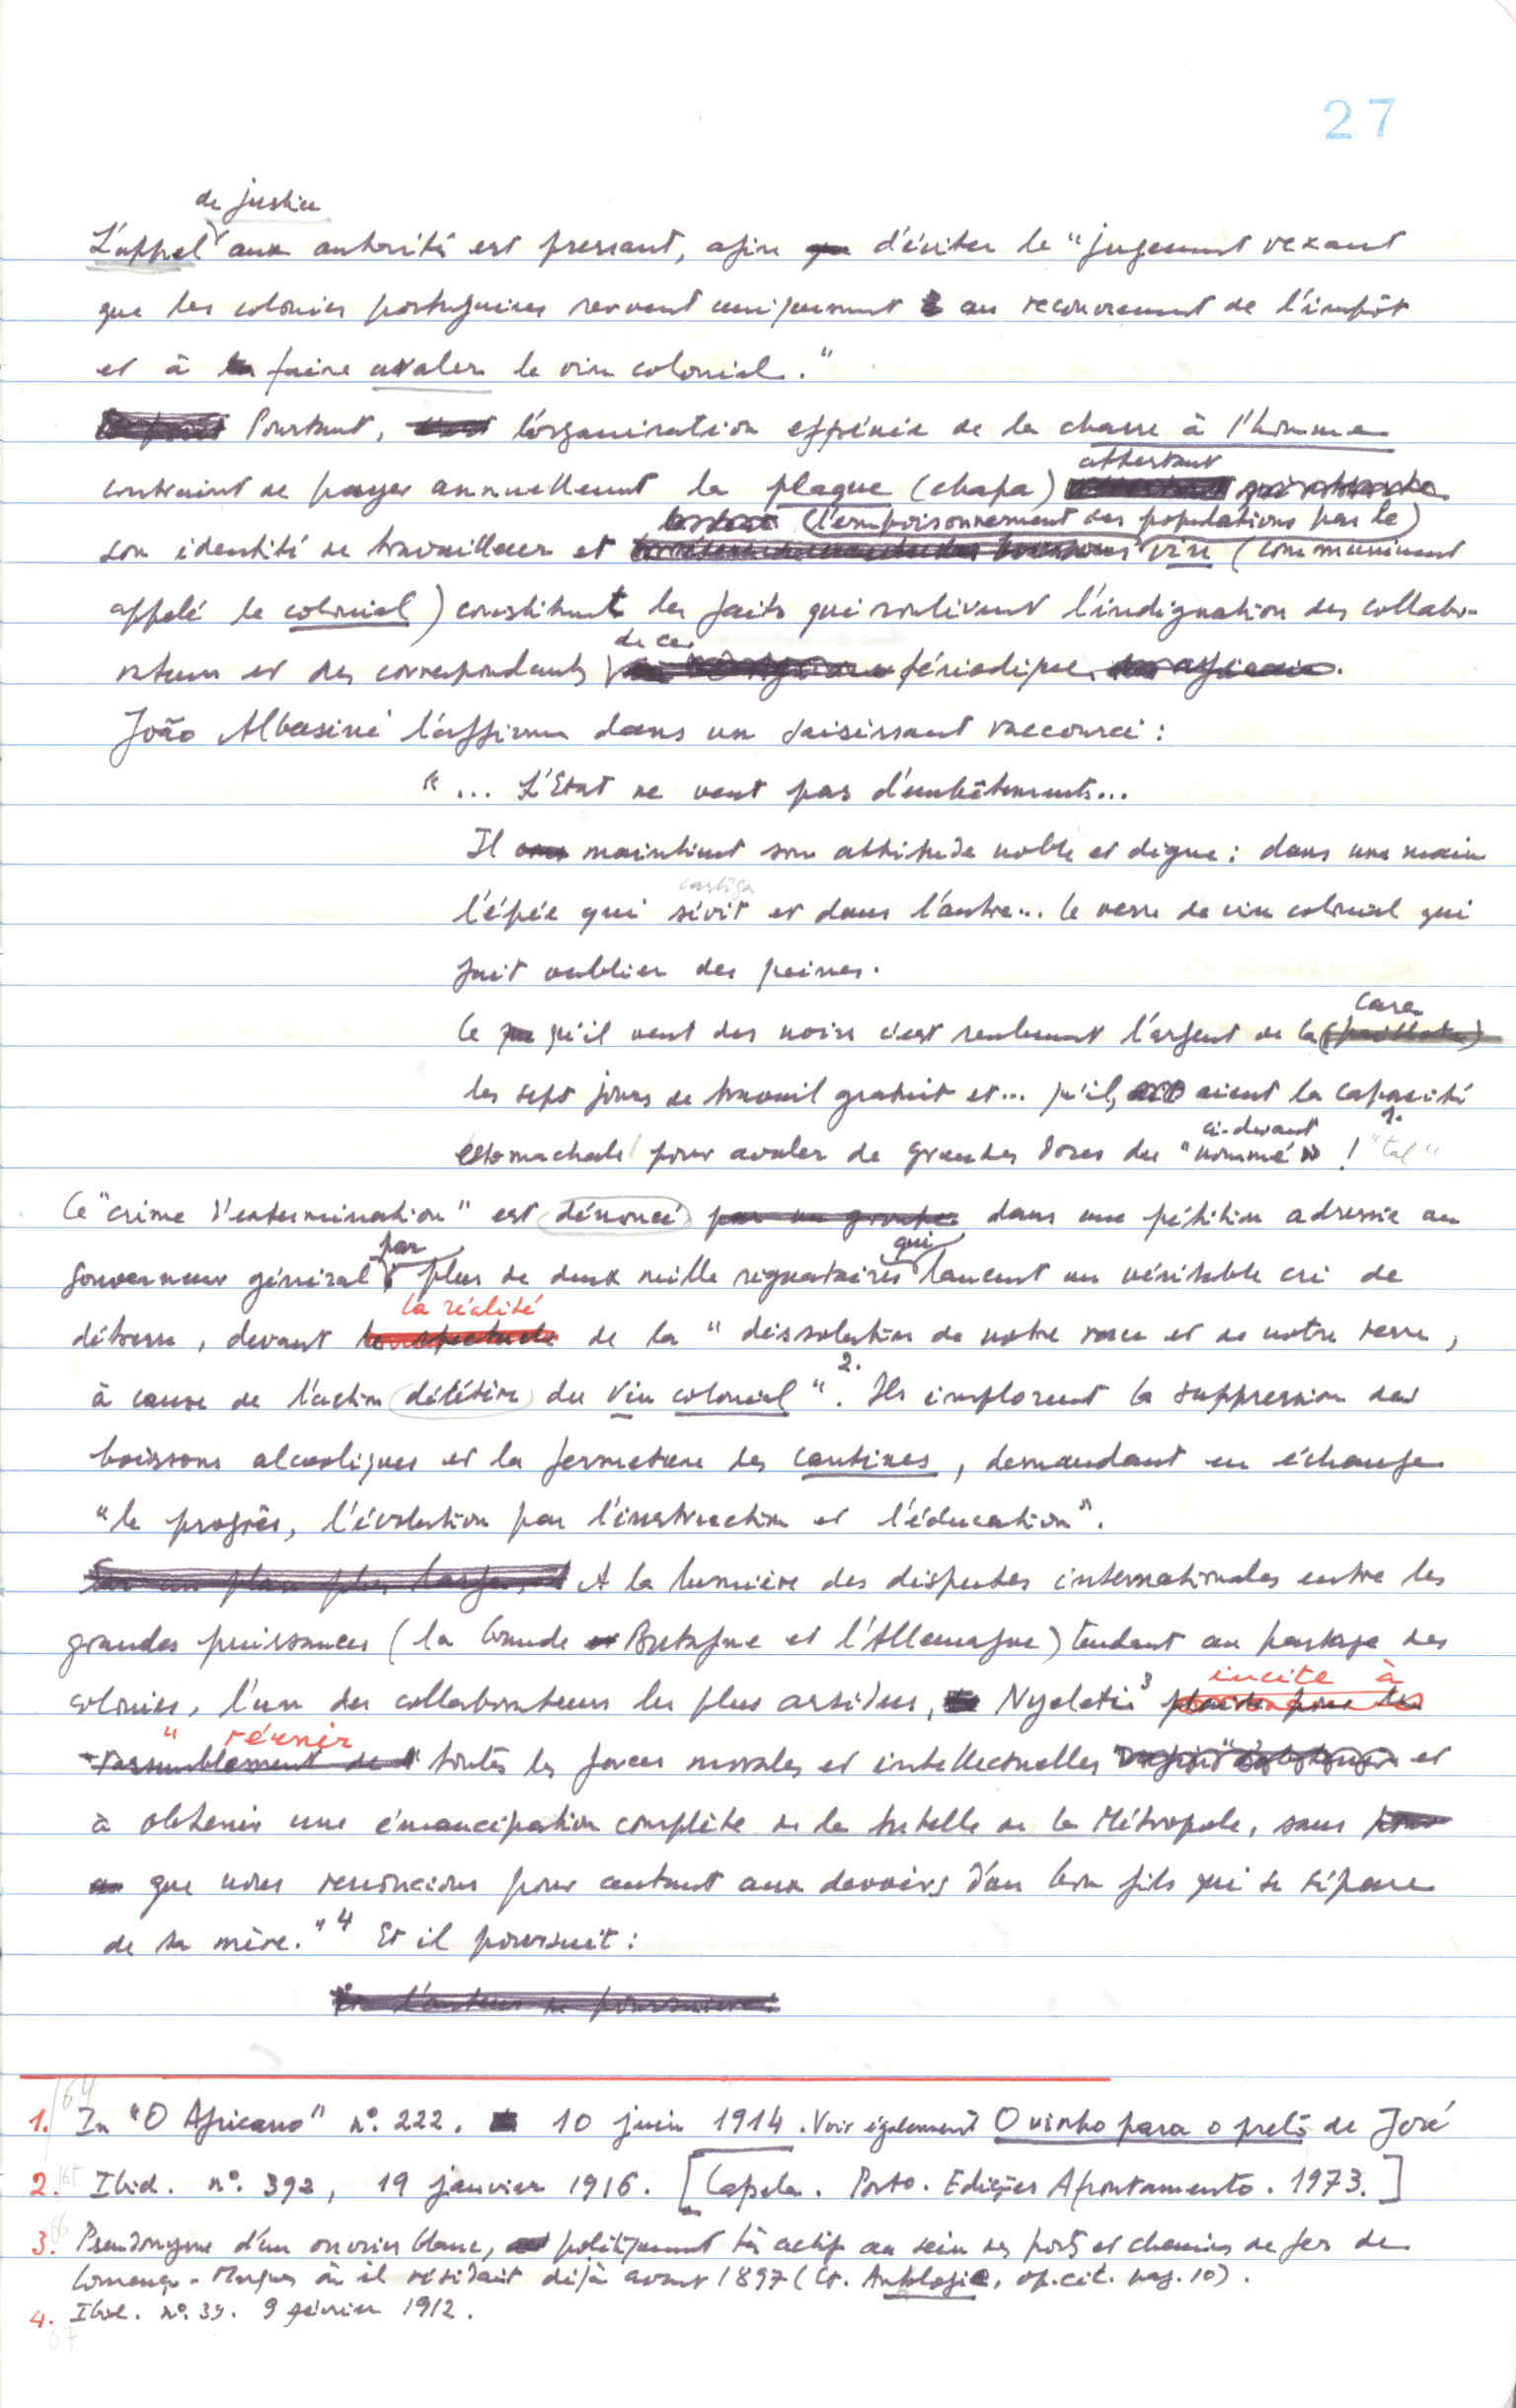 27
de justice
L'appel aux autorités est pressant, afin d'éviter le "jugement vexant
que les colonies portugaises servent uniquement au recouvrement de l'impôt
et à faire avaler le vin colonial."
Pourtant, l'organisation effrénée de la chasse à l'homme
attestant
contraint de payer annuellement la plaque (chapa)
(l'empoisonnement des populations par le)
son identité de travailleur et vin (communément
appelé le colonial) constituent les faits qui soulèvent l'indignation des collabo-
de ce
rateurs et des correspondants périodique.
João Albasini l'affirme dans un saisissant raccourci :
"... L'Etat ne veut pas d'embêtements...
Il maintient son attitude noble et digne : dans une main
castiga
l'épée qui sévit et dans l'autre... le verre de vin colonial qui
fait oublier des peines.
case
Ce qu'il veut des noirs c'est seulement l'argent de la (paillote)
les sept jours de travail gratuit et... qu'ils aient la capacité
ci-devant 1.
estomachale pour avaler de grandes doses du "nommé" ! "tal"
Ce "crime d'extermination" est dénoncé par un groupe dans une pétition adressée au
par qui
Gouverneur général plus de deux mille signataires lancent un véritable cri de
la réalité
détresse, devant le spectacle de la "dissolution de notre race et de notre terre,
2.
à cause de l'action délétère du vin colonial". Ils implorent la suppression des
boissons alcooliques et la fermeture des cantines, demandant en échange
"le progrès, l'évolution par l'instruction et l'éducation".
Sur un plan plus large, A la lumière des disputes internationales entre les
grandes puissances (la Grande Bretagne et l'Allemagne) tendant au partage des
incite à
colonies, l'un des collaborateurs les plus assidus, Nyeleti 3 plaide pour le
" réunir
rassemblement de " toutes les forces morales et intellectuelles et
à obtenir une émancipation complète de la tutelle de la Métropole, sans
que nous renoncions pour autant aux devoirs d'un bon fils qui se sépare
de sa mère." 4 Et il poursuit :
64
1. In "O Africano" nº. 222. 10 juin 1914. Voir également O vinho para o preto de José
2. Ibid. nº. 392, 19 janvier 1916. [Capela. Porto. Edições Afrontamento. 1973.]
3. Pseudonyme d'un ouvrier blanc, politiquement très actif au sein des ports et chemins de fer de
Lourenço-Marques où il résidait déjà avant 1897 (Cf. Anthologie, op. cit. pag. 10).
4. Ibid. nº. 39. 9 février 1912.
67